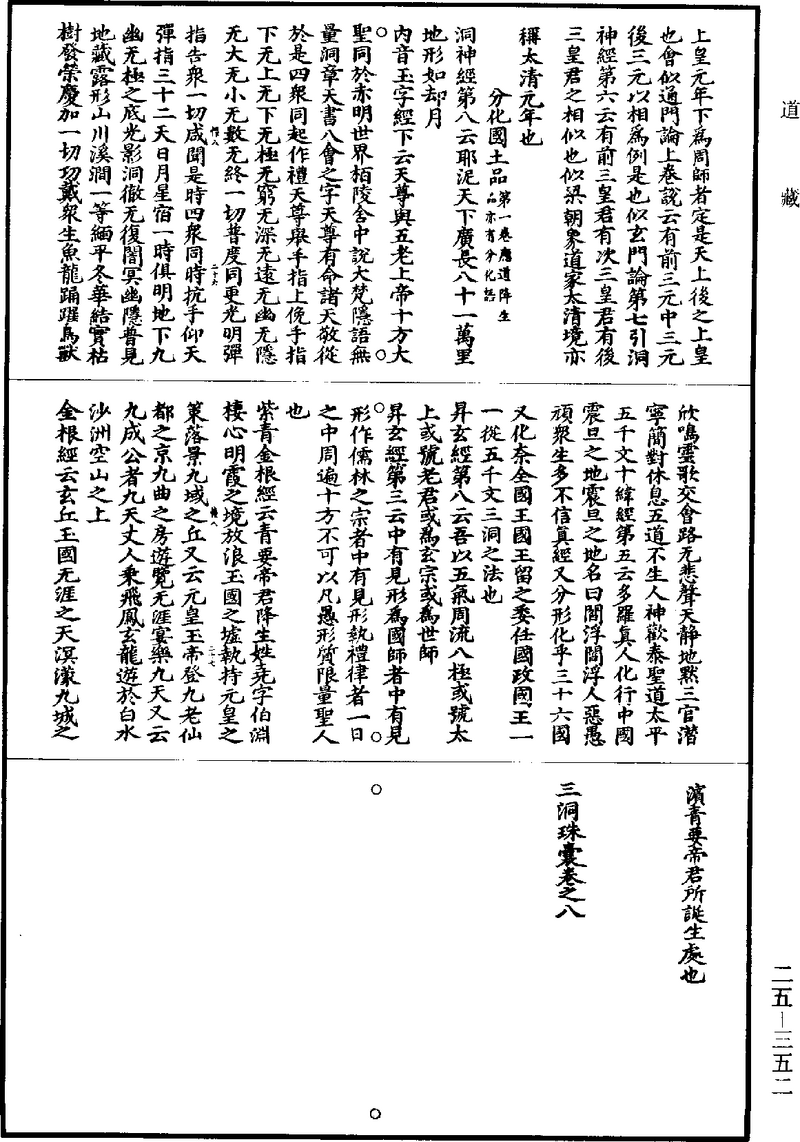 道藏
上皇元年下爲周師者定是天上後之上皇
也會似通門論上卷說云有前三元中三元
後三元以相爲例是也似玄門論第七引洞
神經第六云有前三皇君有次三皇君有後
三皇君之相似也似梁朝象道家太清境亦
稱太清元年也
分化國土品第一卷應道降生品亦有分化語
洞神經第八云耶泥天下廣長八十一萬里
地形如却月
内音玉字經下云天尊與五老上帝十方大
聖同於赤明世界栢陵舍中說大梵隱語無
量洞章天書八會之字天尊有命諸天敬從
於是四衆同起作禮天尊舉手指上俛手指
下无上无下无極无窮无深无遠无幽无隱
无大无小无數无終一切普度同更光明彈
指告衆一切咸聞是時四衆同時抗手仰天
彈指三十二天日月星宿一時俱明地下九
幽无極之底光影洞徹无復闇冥幽隱普見
地藏露形山川溪澗一等緬平冬華結實枯
樹發榮慶加一切功戴衆生魚龍踊躍鳥獸
欣鳴靈歌交會路无悲聲天静地默三官潛
寧簡對休息五道不生人神歡泰聖道太平
五千文十緯經第五云多羅真人化行中國
震旦之地震旦之地名曰閻浮閻浮人惡愚
頑衆生多不信真經又分形化乎三十六國
又化奈全國王國王留之委任國政國王一
一從五千文三洞之法也
昇玄經第八云吾以五氣周流八極或號太
上或號老君或爲玄宗或爲世師
昇玄經第三云中有見形爲國師者中有見
形作儒林之宗者中有見形執禮律者一日
之中周遍十方不可以凡愚形質限量聖人
也
紫青金根經云青要帝君降生姓堯字伯淵
棲心明霞之境放浪玉國之墟執持元皇之
策落景九域之丘又云元皇玉帝登九老仙
都之京九曲之房遊覽无涯宴樂九天又云
九成公者九天丈人乘飛鳳玄龍遊於白水
沙洲空山之上
金根經云玄丘玉國无涯之天溟濛九城之
濱青要帝君所誕生處也
三洞珠囊卷之八
二五—三五二